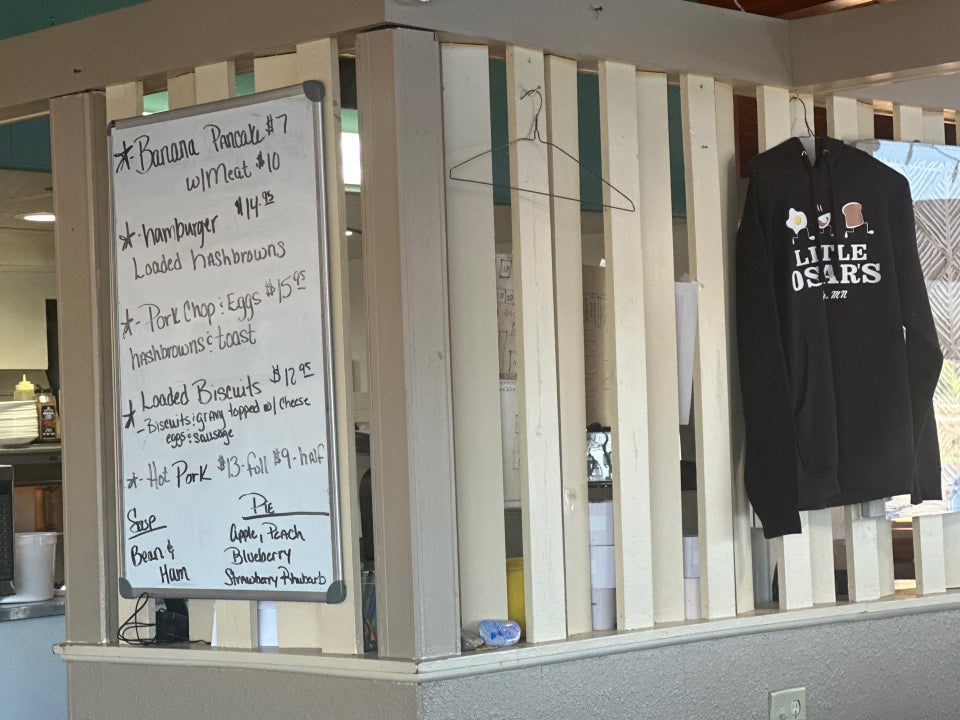 *- Banana Pancake $7
w/Meat $10
*- hamburger $14.95
Loaded hashbrowns
*- Pork Chop & Eggs $15.95
hashbrowns & toast
* Loaded Biscuits $12.95
- Biscuits & gravy topped w/ Cheese
eggs & sausage
*- Hot Pork $13-full $9-half
Soup
Bean &
Ham
Pie
Apple, Peach
Blueberry
Strawberry Rhubarb
LITTLE
OSCAR'S
MN